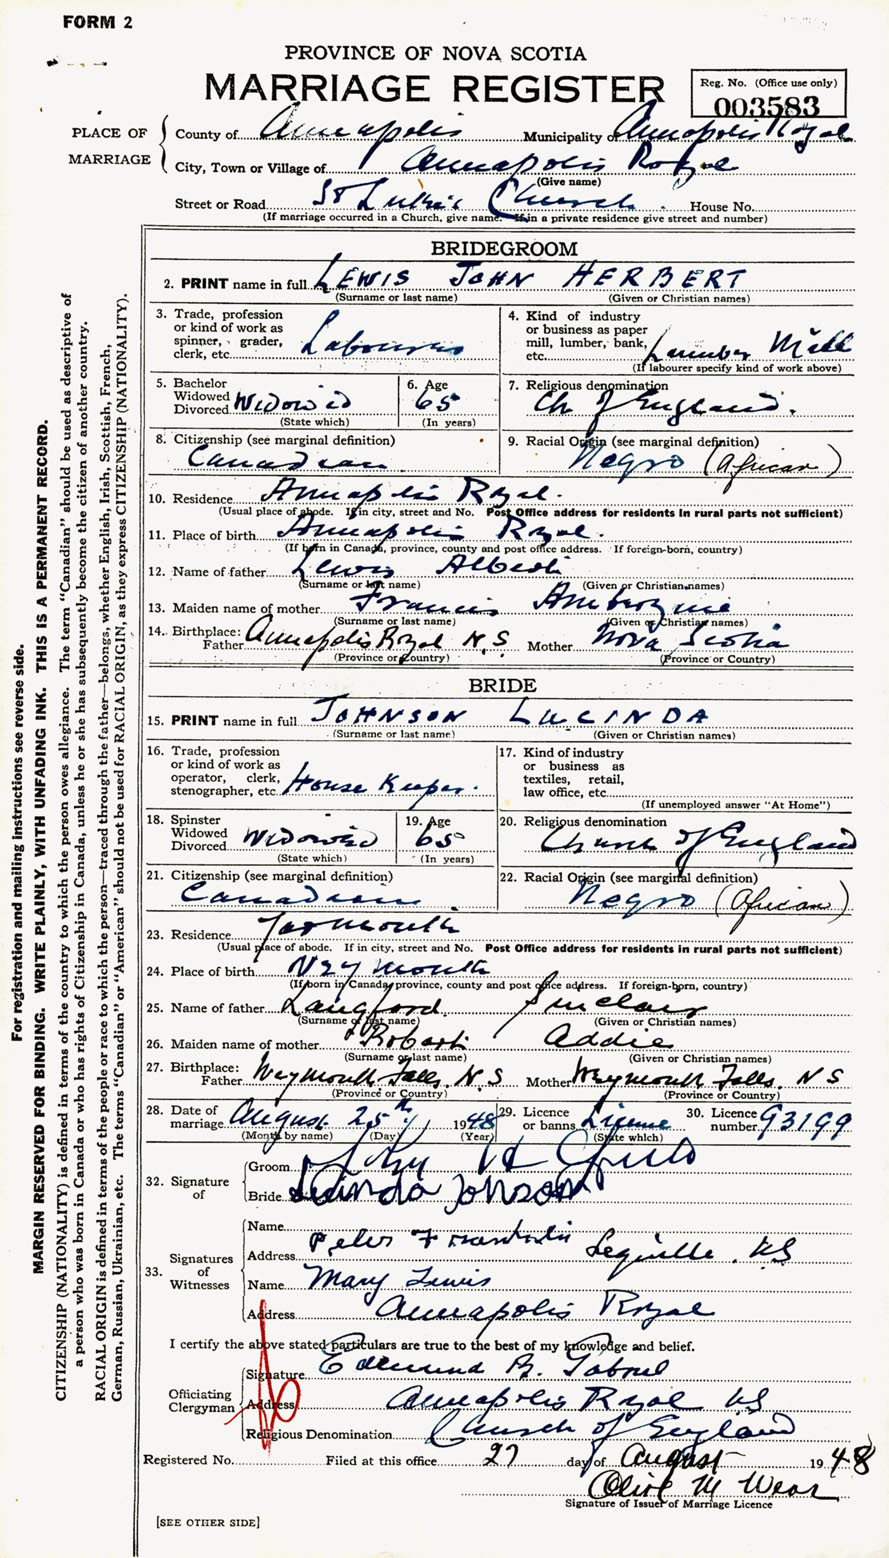 FORM 2
PROVINCE OF NOVA SCOTIA
MARRIAGE REGISTER
Reg. No. (Office use only)
003583
PLACE OF MARRIAGE
County of Annapolis Municipality of Annapolis Royal
City, Town or Village of Annapolis Royal
(Give name)
Street or Road St Luke's Church. House No.
(If marriage occurred in a Church, give name. If in a private residence give street and number)
BRIDEGROOM
2. PRINT name in full LEWIS JOHN HERBERT
(Surname or last name) (Given or Christian names)
3. Trade, profession or kind of work as spinner, grader, clerk, etc. Labourer
4. Kind of industry or business as paper mill, lumber, bank, etc. Lumber Mill
(If labourer specify kind of work above)
5. Bachelor Widowed Divorced Widowed
(State which)
6. Age 65
(In years)
7. Religious denomination
Ch of England.
8. Citizenship (see marginal definition)
Canadian
9. Racial Origin (see marginal definition)
Negro (African)
10. Residence Annapolis Royal.
(Usual place of abode. If in city, street and No. Post Office address for residents in rural parts not sufficient)
11. Place of birth Annapolis Royal.
(If born in Canada, province, county and post office address. If foreign-born, country)
12. Name of father Lewis Albert
(Surname or last name) (Given or Christian names)
13. Maiden name of mother Francis
(Surname or last name) (Given or Christian names)
14. Birthplace: Father Annapolis Royal N.S Mother Nova Scotia
(Province or Country) (Province or Country)
BRIDE
15. PRINT name in full JOHNSON LUCINDA
(Surname or last name) (Given or Christian names)
16. Trade, profession or kind of work as operator, clerk, stenographer, etc. House Keeper.
17. Kind of industry or business as textiles, retail, law office, etc.
(If unemployed answer "At Home")
18. Spinster Widowed Divorced Widowed
(State which)
19. Age 65
(In years)
20. Religious denomination
Church of England
21. Citizenship (see marginal definition)
Canadian
22. Racial Origin (see marginal definition)
Negro (African)
23. Residence Yarmouth
(Usual place of abode. If in city, street and No. Post Office address for residents in rural parts not sufficient)
24. Place of birth Weymouth
(If born in Canada, province, county and post office address. If foreign-born, country)
25. Name of father Langford Sinclair
(Surname or last name) (Given or Christian names)
26. Maiden name of mother Robart Addie
(Surname or last name) (Given or Christian names)
27. Birthplace: Father Weymouth Falls, N.S Mother Weymouth Falls. N S
(Province or Country) (Province or Country)
28. Date of marriage August 25th 1948
(Month by name) (Day) (Year)
29. Licence or banns License
(State which)
30. Licence number 93199
32. Signature of
Groom John H
Bride Lucinda Jonson
33. Signatures of Witnesses
Name Peter Franklin
Address Lequille NS
Name Mary Lewis
Address Annapolis Royal
I certify the above stated particulars are true to the best of my knowledge and belief.
Officiating Clergyman
Signature Edmund B.
Address Annapolis Royal NS
Religious Denomination Church of England
Registered No. Filed at this office 27 day of August 1948
Olive M Wear
Signature of Issuer of Marriage Licence
[SEE OTHER SIDE]
For registration and mailing instructions see reverse side.
MARGIN RESERVED FOR BINDING. WRITE PLAINLY, WITH UNFADING INK. THIS IS A PERMANENT RECORD.
CITIZENSHIP (NATIONALITY) is defined in terms of the country to which the person owes allegiance. The term "Canadian" should be used as descriptive of
a person who was born in Canada or who has rights of Citizenship in Canada, unless he or she has subsequently become the citizen of another country.
RACIAL ORIGIN is defined in terms of the people or race to which the person—traced through the father—belongs, whether English, Irish, Scottish, French,
German, Russian, Ukrainian, etc. The terms "Canadian" or "American" should not be used for RACIAL ORIGIN, as they express CITIZENSHIP (NATIONALITY).